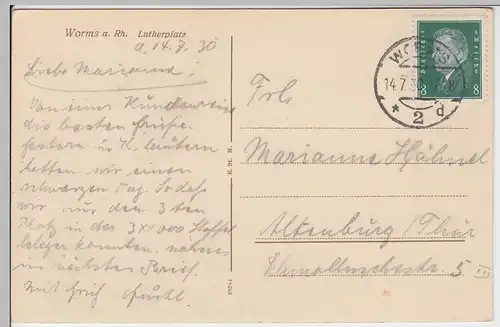 Worms a. Rh. Lutherplatz
a. 14.7.30
Liebe Marianne!
Von einer Rundreise
die besten Grüße.
gestern in K. lautern
hatten wir einen
schwarzen Tag. So daß
wir nur den 3ten
Platz in der 3x1000 Staffel
belegen konnten. näheres
im nächsten Brief.
Mit
Deutsches Reich
8 8
WORMS
14.7.30
* 2 d
Frl.
Marianne Hähnel
Altenburg/Thür
5 III